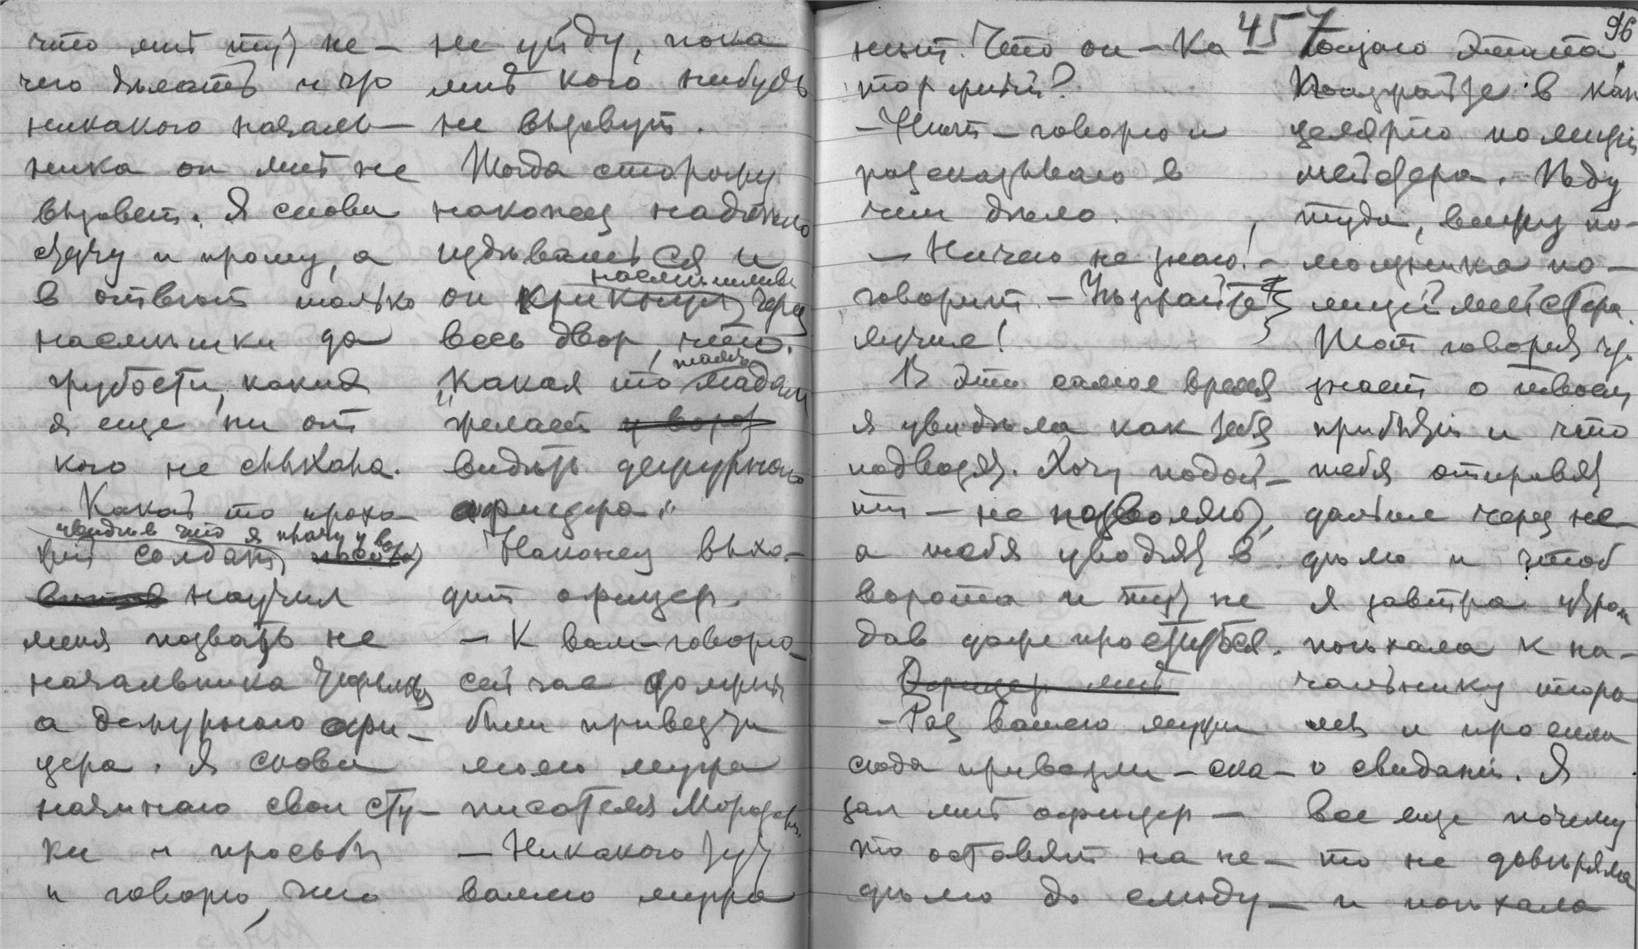 что мнѣ тутъ не-
чего дѣлать и что
никакого началь-
ника он мнѣ не
вызовет. Я снова
стучу и прошу, а
в отвѣт только
насмѣшки да
грубости, какия
я еще ни от
кого не слыхала.
Какой то прохо-
увидѣв что я плачу у во
жий солдат
научил
меня позвать не
начальника тюрьмы
а дежурнаго офи-
цера. Я снова
начинаю свои сту-
ки и просьбы
и говорю, что
не уйду, пока
мнѣ кого нибудь
не вызовут.
Тогда сторожу
наконец надоѣло
издѣваться и
насмѣшливо
он крикнул через
весь двор, что:
там
„Какая то мадам
желает у ворот
видѣть дежурнаго
офицера."
Наконец выхо-
дит офицер.
- К вам - говорю -
сейчас должны
были привезти
моего мужа
писателя Морозова.
- Никакого тут
вашего мужа
457
96
нѣт. Что он - Ка-
торжный?
- Нѣт - говорю и
разсказываю в
чем дѣло.
- Ничего не знаю! -
говорит. - Уѣзжайте
лучше!
В это самое время
я увидѣла как тебя
подводят. Хочу подой-
ти - не позволяют,
а тебя уводят в
ворота и тут не
дав даже проститься.
Офицер мнѣ
- Раз вашего мужа
сюда привезли - ска-
зал мнѣ офицер -
то оставят на не-
дѣлю до слѣду-
ющаго этапа.
Поѣзжайте в кан-
целярию полицій-
мейстера. Иду
туда, вижу по-
мощника по-
лиціймейстера.
Тот говорит что
знает о твоем
прибытіи и что
тебя отправят
дальше через не-
дѣлю и чтоб
я завтра утром
поѣхала к на-
чальнику тюрь-
мы и просила
о свиданіи. Я
все еще почему
то не довѣряла
и поѣхала